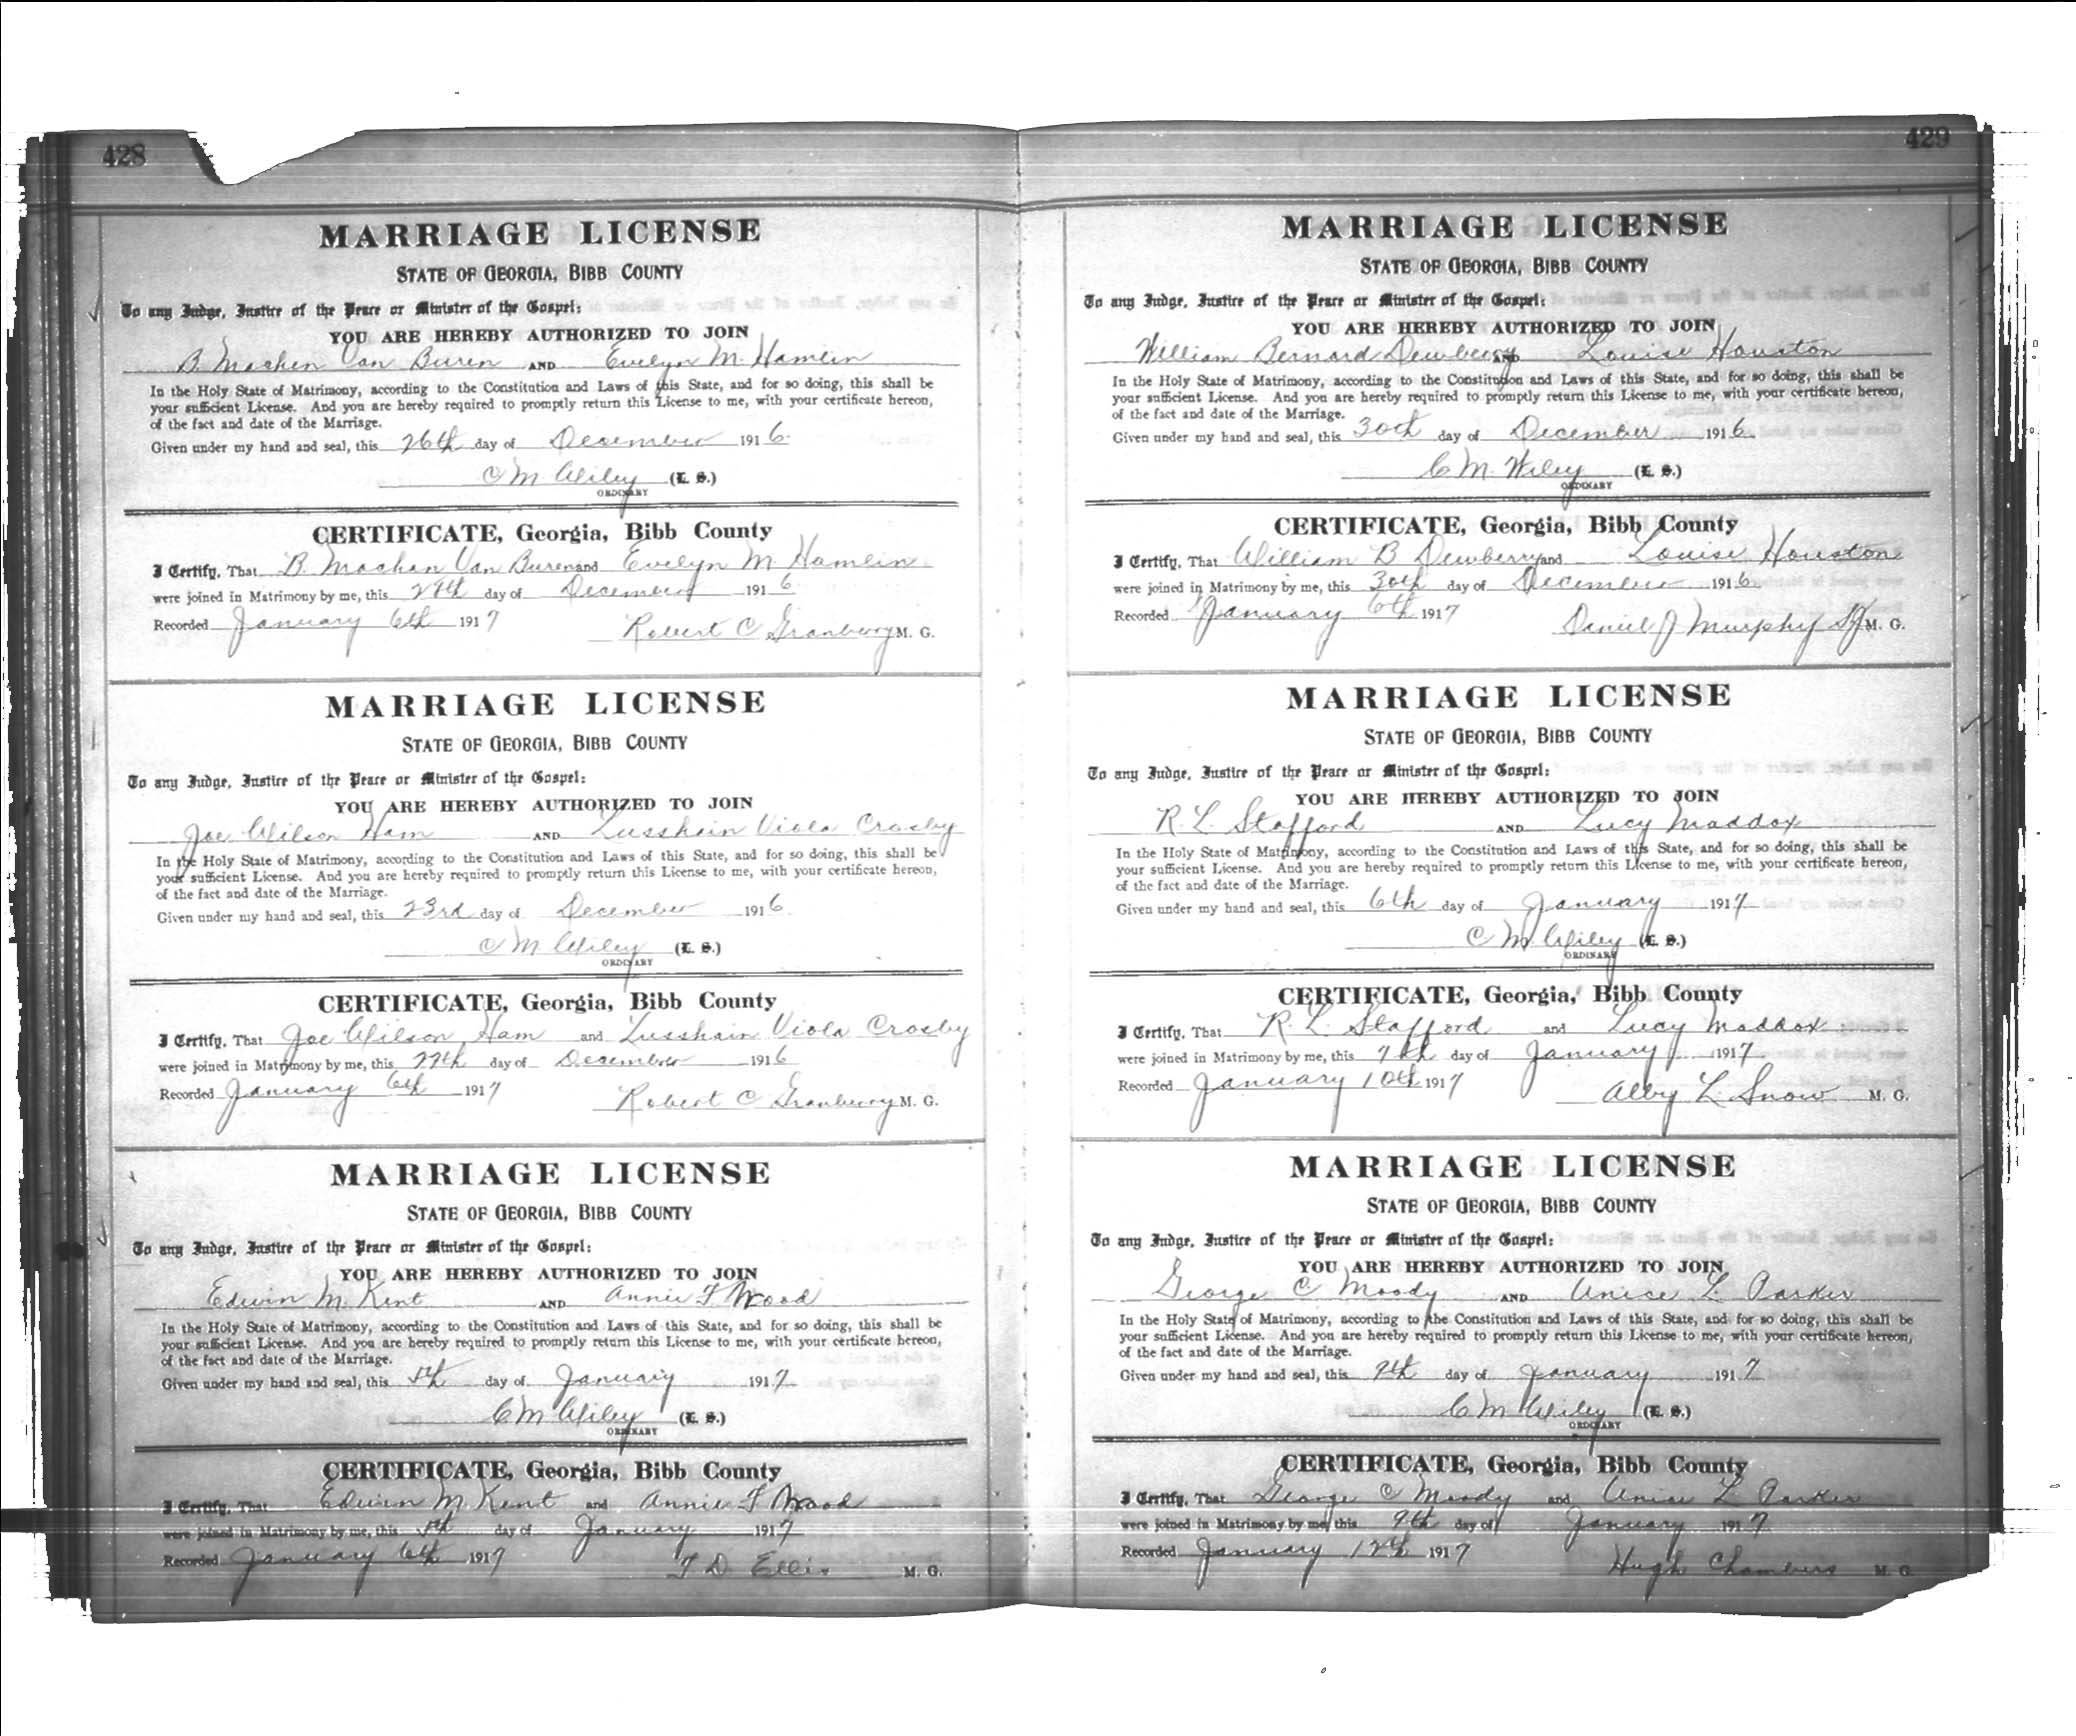 428
MARRIAGE LICENSE
STATE OF GEORGIA, BIBB COUNTY
To any Judge, Justice of the Peace or Minister of the Gospel:
YOU ARE HEREBY AUTHORIZED TO JOIN
B. Machen Van Buren AND Evelyn M. Hamlin
In the Holy State of Matrimony, according to the Constitution and Laws of this State, and for so doing, this shall be
your sufficient License. And you are hereby required to promptly return this License to me, with your certificate hereon,
of the fact and date of the Marriage.
Given under my hand and seal, this 26th day of December 1916
C M Wiley (L. S.)
ORDINARY
CERTIFICATE, Georgia, Bibb County
I Certify, That B. Machen Van Buren and Evelyn M Hamlin
were joined in Matrimony by me, this day of December 1916
Recorded January 6th 1917 Robert C Granberry M. G.
MARRIAGE LICENSE
STATE OF GEORGIA, BIBB COUNTY
To any Judge, Justice of the Peace or Minister of the Gospel:
YOU ARE HEREBY AUTHORIZED TO JOIN
Joe Wilson Ham AND Lusshain Viola Crosby
In the Holy State of Matrimony, according to the Constitution and Laws of this State, and for so doing, this shall be
your sufficient License. And you are hereby required to promptly return this License to me, with your certificate hereon,
of the fact and date of the Marriage.
Given under my hand and seal, this 23rd day of December 1916
C M Wiley (L. S.)
ORDINARY
CERTIFICATE, Georgia, Bibb County
I Certify, That Joe Wilson Ham and Lusshain Viola Crosby
were joined in Matrimony by me, this 27th day of December 1916
Recorded January 6th 1917 Robert C Granberry M. G.
MARRIAGE LICENSE
STATE OF GEORGIA, BIBB COUNTY
To any Judge, Justice of the Peace or Minister of the Gospel:
YOU ARE HEREBY AUTHORIZED TO JOIN
Edwin M. Kent AND Annie F Wood
In the Holy State of Matrimony, according to the Constitution and Laws of this State, and for so doing, this shall be
your sufficient License. And you are hereby required to promptly return this License to me, with your certificate hereon,
of the fact and date of the Marriage.
Given under my hand and seal, this 5th day of January 1917
C M Wiley (L. S.)
ORDINARY
CERTIFICATE, Georgia, Bibb County
I Certify, That Edwin M. Kent and Annie F Wood
were joined in Matrimony by me, this 5th day of January 1917
Recorded January 6th 1917 T D Ellis M. G.
429
MARRIAGE LICENSE
STATE OF GEORGIA, BIBB COUNTY
To any Judge, Justice of the Peace or Minister of the Gospel:
YOU ARE HEREBY AUTHORIZED TO JOIN
William Bernard Dewberry AND Louise Houston
In the Holy State of Matrimony, according to the Constitution and Laws of this State, and for so doing, this shall be
your sufficient License. And you are hereby required to promptly return this License to me, with your certificate hereon,
of the fact and date of the Marriage.
Given under my hand and seal, this 30th day of December 1916
C M. Wiley (L. S.)
ORDINARY
CERTIFICATE, Georgia, Bibb County
I Certify, That William B Dewberry and Louise Houston
were joined in Matrimony by me, this 30th day of December 1916
Recorded January 6th 1917 Daniel J Murphy SJ M. G.
MARRIAGE LICENSE
STATE OF GEORGIA, BIBB COUNTY
To any Judge, Justice of the Peace or Minister of the Gospel:
YOU ARE HEREBY AUTHORIZED TO JOIN
R. L. Stafford AND Lucy Maddox
In the Holy State of Matrimony, according to the Constitution and Laws of this State, and for so doing, this shall be
your sufficient License. And you are hereby required to promptly return this License to me, with your certificate hereon,
of the fact and date of the Marriage.
Given under my hand and seal, this 6th day of January 1917
C M. Wiley (L. S.)
ORDINARY
CERTIFICATE, Georgia, Bibb County
I Certify, That R. L. Stafford and Lucy Maddox
were joined in Matrimony by me, this 7th day of January 1917
Recorded January 10th 1917 Alby L. Snow M. G.
MARRIAGE LICENSE
STATE OF GEORGIA, BIBB COUNTY
To any Judge, Justice of the Peace or Minister of the Gospel:
YOU ARE HEREBY AUTHORIZED TO JOIN
George C. Moody AND Anice L Parker
In the Holy State of Matrimony, according to the Constitution and Laws of this State, and for so doing, this shall be
your sufficient License. And you are hereby required to promptly return this License to me, with your certificate hereon,
of the fact and date of the Marriage.
Given under my hand and seal, this 9th day of January 1917
C M Wiley (L. S.)
ORDINARY
CERTIFICATE, Georgia, Bibb County
I Certify, That George C Moody and Anice L Parker
were joined in Matrimony by me, this 9th day of January 1917
Recorded January 12th 1917 Hugh Chambers M. G.